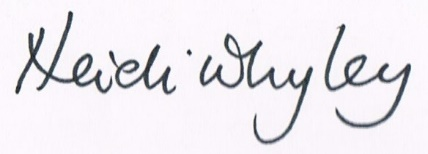 Heidi Whyley